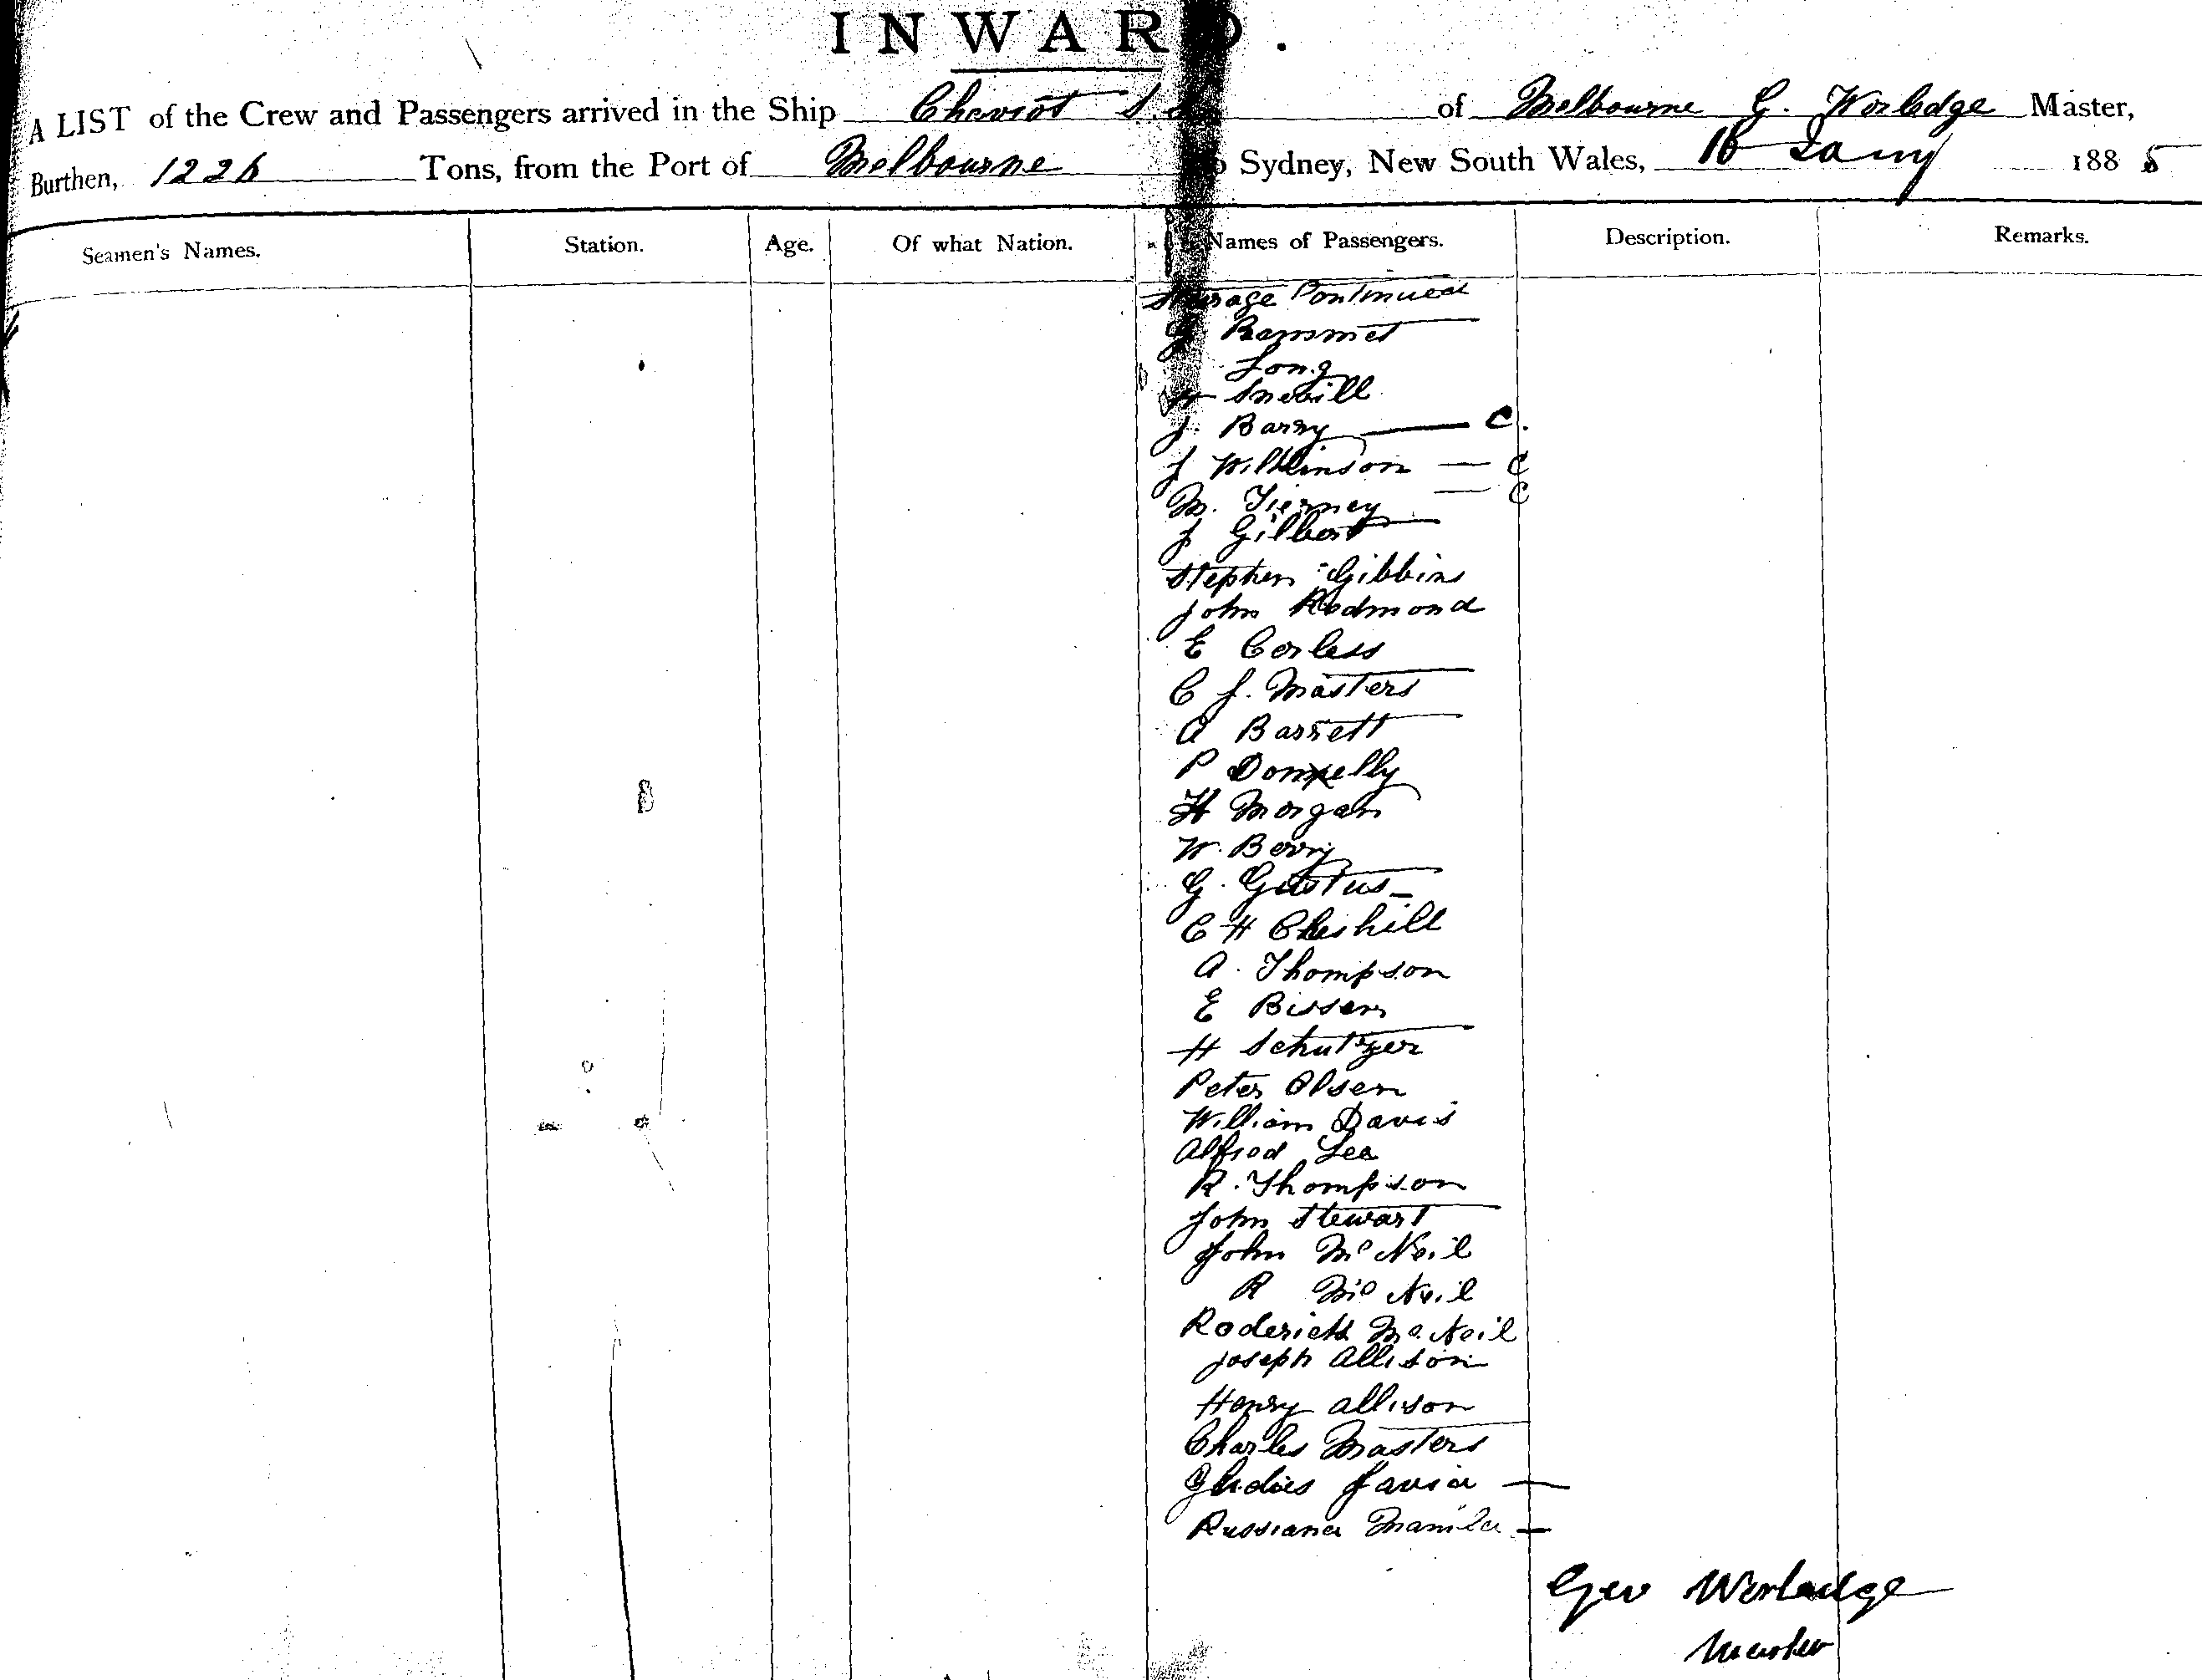 INWARD.
A LIST of the Crew and Passengers arrived in the Ship Cheviot S.S. of Melbourne G. Worledge Master,
Burthen, 1226 Tons, from the Port of Melbourne to Sydney, New South Wales, 16 Jany 1885
Seamen's Names. Station. Age. Of what Nation. Names of Passengers. Description. Remarks.
Steerage Continued
Bammet
Long
H Snevill
J. Barry — C.
J Wilkinson — C
M. Tierney — C
J Gilbert
Stephen Gibbins
John Redmond
E Corless
C J. Masters
A Barrett
P Donnelly
H Morgan
W. Berry
G. Gustus
C H Cheshill
A. Thompson
E Bissen
H Schultzer
Peter Olsen
William Davis
Alfred Lee
R. Thompson
John Stewart
John McNeil
R McNeil
Roderick McNeil
Joseph Allison
Henry Allison
Charles Masters
Javia —
Russiana Manila —
Geo Worledge
Master